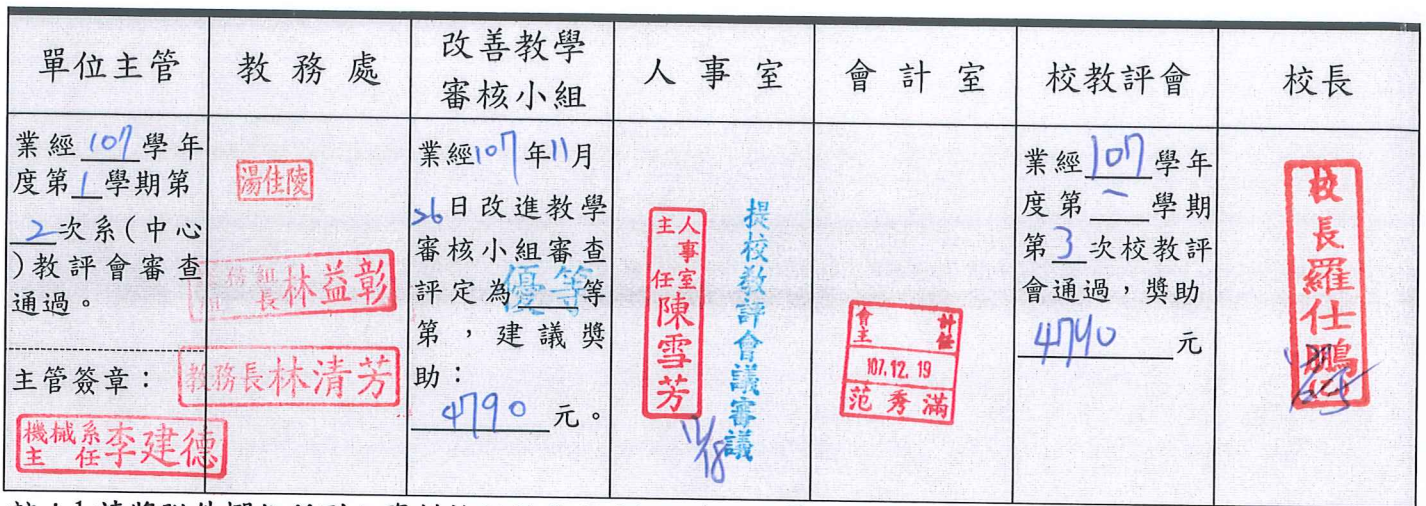 單位主管
教務處
改善教學
審核小組
人事室
會計室
校教評會
校長
業經107學年
度第1學期第
2次系(中心
)教評會審查
通過。
主管簽章：
機械系
主任李建德
湯佳陵
組長林益彰
教務長林清芳
業經107年11月
26日改進教學
審核小組審查
評定為優等等
第，建議獎
助：
4790元。
人事室
主任
陳雪芳
提校教評會議審議
12/18
會計
主任
107.12.19
范秀滿
業經107學年
度第一學期
第3次校教評
會通過，獎助
4790元
校長羅仕鵬